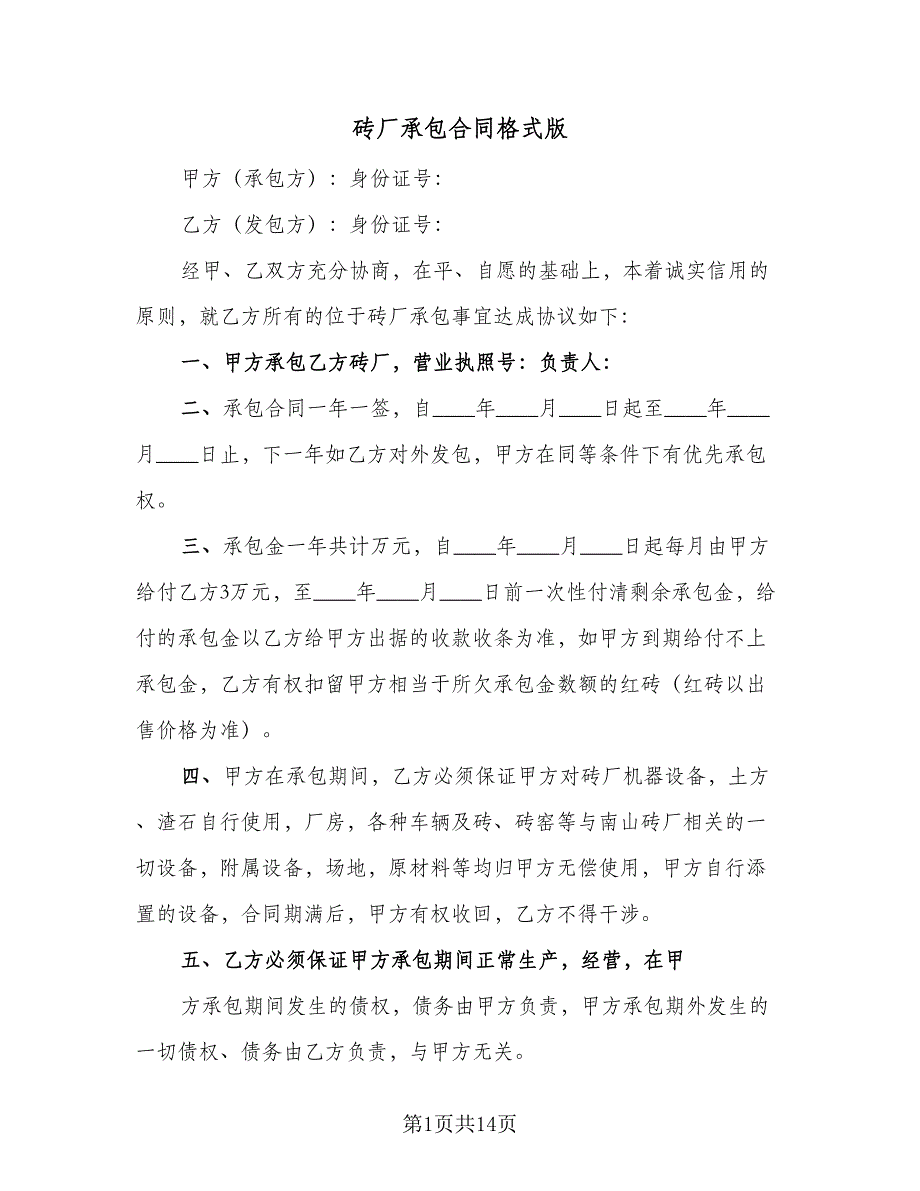 砖厂承包合同格式版
甲方（承包方）：身份证号：
乙方（发包方）：身份证号：
经甲、乙双方充分协商，在平、自愿的基础上，本着诚实信用的
原则，就乙方所有的位于砖厂承包事宜达成协议如下：
一、甲方承包乙方砖厂，营业执照号：负责人：
二、承包合同一年一签，自____年____月____日起至____年____
月____日止，下一年如乙方对外发包，甲方在同等条件下有优先承包
权。
三、承包金一年共计万元，自____年____月____日起每月由甲方
给付乙方3万元，至____年____月____日前一次性付清剩余承包金，给
付的承包金以乙方给甲方出据的收款收条为准，如甲方到期给付不上
承包金，乙方有权扣留甲方相当于所欠承包金数额的红砖（红砖以出
售价格为准）。
四、甲方在承包期间，乙方必须保证甲方对砖厂机器设备，土方
、渣石自行使用，厂房，各种车辆及砖、砖窑等与南山砖厂相关的一
切设备，附属设备，场地，原材料等均归甲方无偿使用，甲方自行添
置的设备，合同期满后，甲方有权收回，乙方不得干涉。
五、乙方必须保证甲方承包期间正常生产，经营，在甲
方承包期间发生的债权，债务由甲方负责，甲方承包期外发生的
一切债权、债务由乙方负责，与甲方无关。
第1页共14页